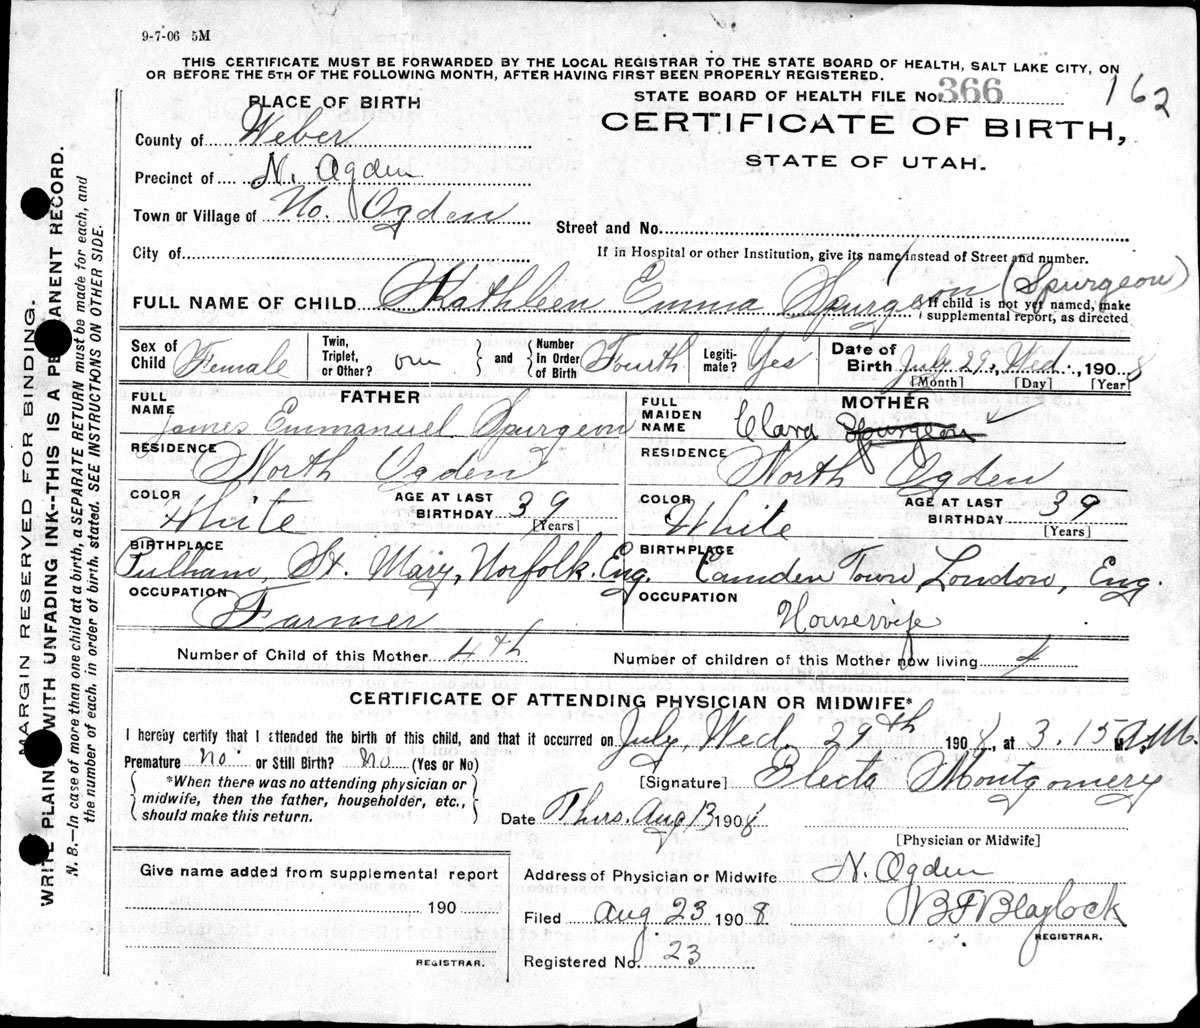 9-7-06 5M
THIS CERTIFICATE MUST BE FORWARDED BY THE LOCAL REGISTRAR TO THE STATE BOARD OF HEALTH, SALT LAKE CITY, ON
OR BEFORE THE 5TH OF THE FOLLOWING MONTH, AFTER HAVING FIRST BEEN PROPERLY REGISTERED.
PLACE OF BIRTH
STATE BOARD OF HEALTH FILE No. 366
162
County of Weber
CERTIFICATE OF BIRTH,
STATE OF UTAH.
Precinct of N. Ogden
Town or Village of No. Ogden
Street and No.
City of
If in Hospital or other Institution, give its name instead of Street and number.
FULL NAME OF CHILD Kathleen Emma Spurgeon (Spurgeon)
If child is not yet named, make
supplemental report, as directed
Sex of Child Female
Twin, Triplet, or Other? one
and Number In Order of Birth Fourth
Legitimate? Yes
Date of Birth July 29, Wed., 1908
[Month] [Day] [Year]
FATHER
FULL NAME James Emmanuel Spurgeon
RESIDENCE North Ogden
COLOR White
AGE AT LAST BIRTHDAY 39 [Years]
BIRTHPLACE Pulham, St. Mary, Norfolk. Eng.
OCCUPATION Farmer
MOTHER
FULL MAIDEN NAME Clara Spurgeon
RESIDENCE North Ogden
COLOR White
AGE AT LAST BIRTHDAY 39 [Years]
BIRTHPLACE Camden Town, London, Eng.
OCCUPATION Housewife
Number of Child of this Mother 4th
Number of children of this Mother now living 4
CERTIFICATE OF ATTENDING PHYSICIAN OR MIDWIFE*
I hereby certify that I attended the birth of this child, and that it occurred on July, Wed. 29th 1908, at 3.15 A.M.
Premature No or Still Birth? No (Yes or No)
*When there was no attending physician or
midwife, then the father, householder, etc.,
should make this return.
[Signature] Electa Montgomery
Date Thurs. Aug 13 1908
[Physician or Midwife]
Give name added from supplemental report
190
REGISTRAR.
Address of Physician or Midwife N. Ogden
Filed Aug 23 1908
B F Blaylock
REGISTRAR.
Registered No. 23
MARGIN RESERVED FOR BINDING.
WRITE PLAIN WITH UNFADING INK--THIS IS A PE ANENT RECORD.
N. B.—In case of more than one child at a birth, a SEPARATE RETURN must be made for each, and
the number of each, in order of birth, stated. SEE INSTRUCTIONS ON OTHER SIDE.